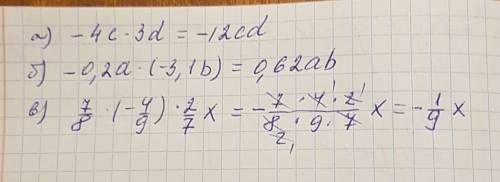 а) -4c · 3d = -12cd
б) -0,2a · (-3,1b) = 0,62ab
в) 7/8 · (-4/9) · 2/7 x = - 7 · 4¹ · 2¹ / 8₂₁ · 9 · 7 x = - 1/9 x